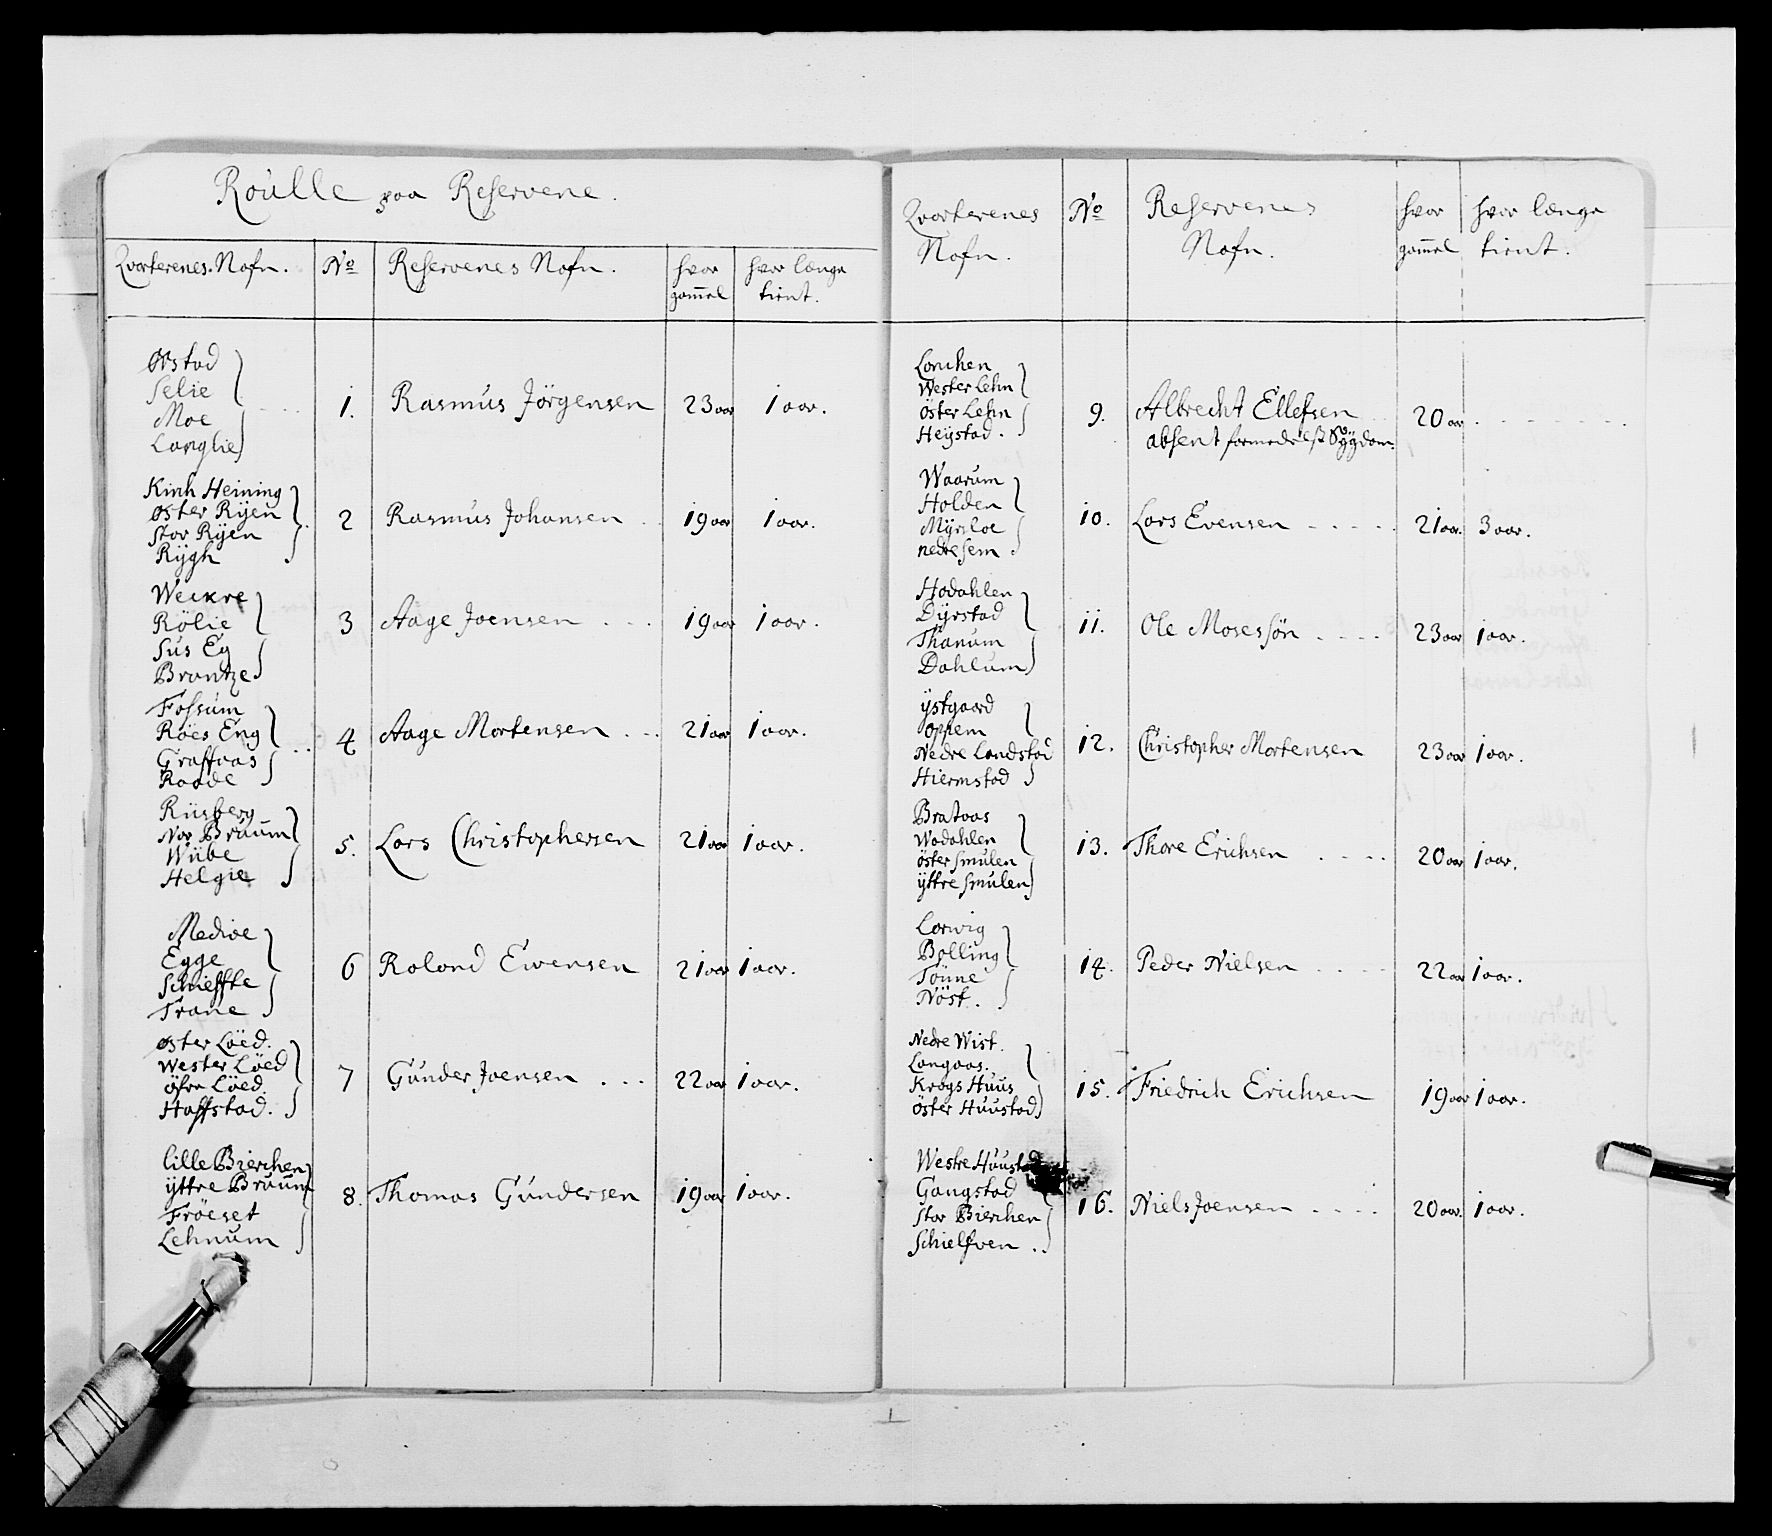 Roülle paa Reservene.
Qvarterenes Nafn. No Reservenes Nafn. hvor gam̄el hvor længe tient.
Østad
Selie
Moe
Langlie
1. Rasmus Jörgensen 23 aar 1 aar.
Kirch Heining
Øster Rÿen
Stor Rÿen
Rÿgh
2 Rasmus Johansen 19 aar 1 aar.
Weckre
Rölie
Sus Eg
Brantze
3 Aage Joensen 19 aar 1 aar.
Fossum
Röes Eng
Graffaas
Raade
4 Aage Mortensen 21 aar 1 aar.
Riisberg
Nor Bruum
Wiibe
Helgie
5. Lars Christophersen 21 aar 1 aar.
Medioe
Egge
Schieffte
Trane
6 Roland Ewensen 21 aar 1 aar.
Øster Löed.
Wester Löed
öfre Löed
Haffstad.
7 Gunder Joensen 22 aar 1 aar.
lille Bierchen
ÿttre Bruum
Fröeset
Lehnum
8. Thomas Gundersen 19 aar 1 aar.
Qvarterenes Nafn. No Reservenes Nafn. hvor gam̄el hvor længe tient.
Lorchen
Wester Lehn
öster Lehn
Heÿstad.
9. Albrecht Ellefsen 20 aar
absent formedelst Sÿgdom.
Waarum
Holden
Mÿrsloe
nedre Sem
10. Lars Evensen 21 aar. 3 aar.
Hodahlen
Dÿrstad
Thanum
Dahlum
11. Ole Mosessøn 23 aar 1 aar.
ÿstgaard
Oppem
Nedre Landstad
Hiermstad
12. Christopher Mortensen 23 aar 1 aar.
Brataas
Wadahlen
öster Smulen
ÿttre Smulen
13. Thore Erichsen 20 aar 1 aar.
Lorwig
Bolling
Tönne
Nöst.
14. Peder Nielsen 22 aar 1 aar.
Nedre Wist.
Langaas.
Krogs Huus
öster Huustad
15. Friedrich Erichsen 19 aar 1 aar.
Westre Huustad
Gangstad
Stor Bierchen
Schielfven.
16. Niels Joensen 20 aar. 1 aar.